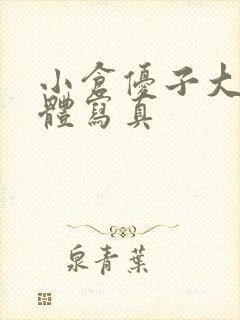 小倉優子大
體寫真
泉青葉